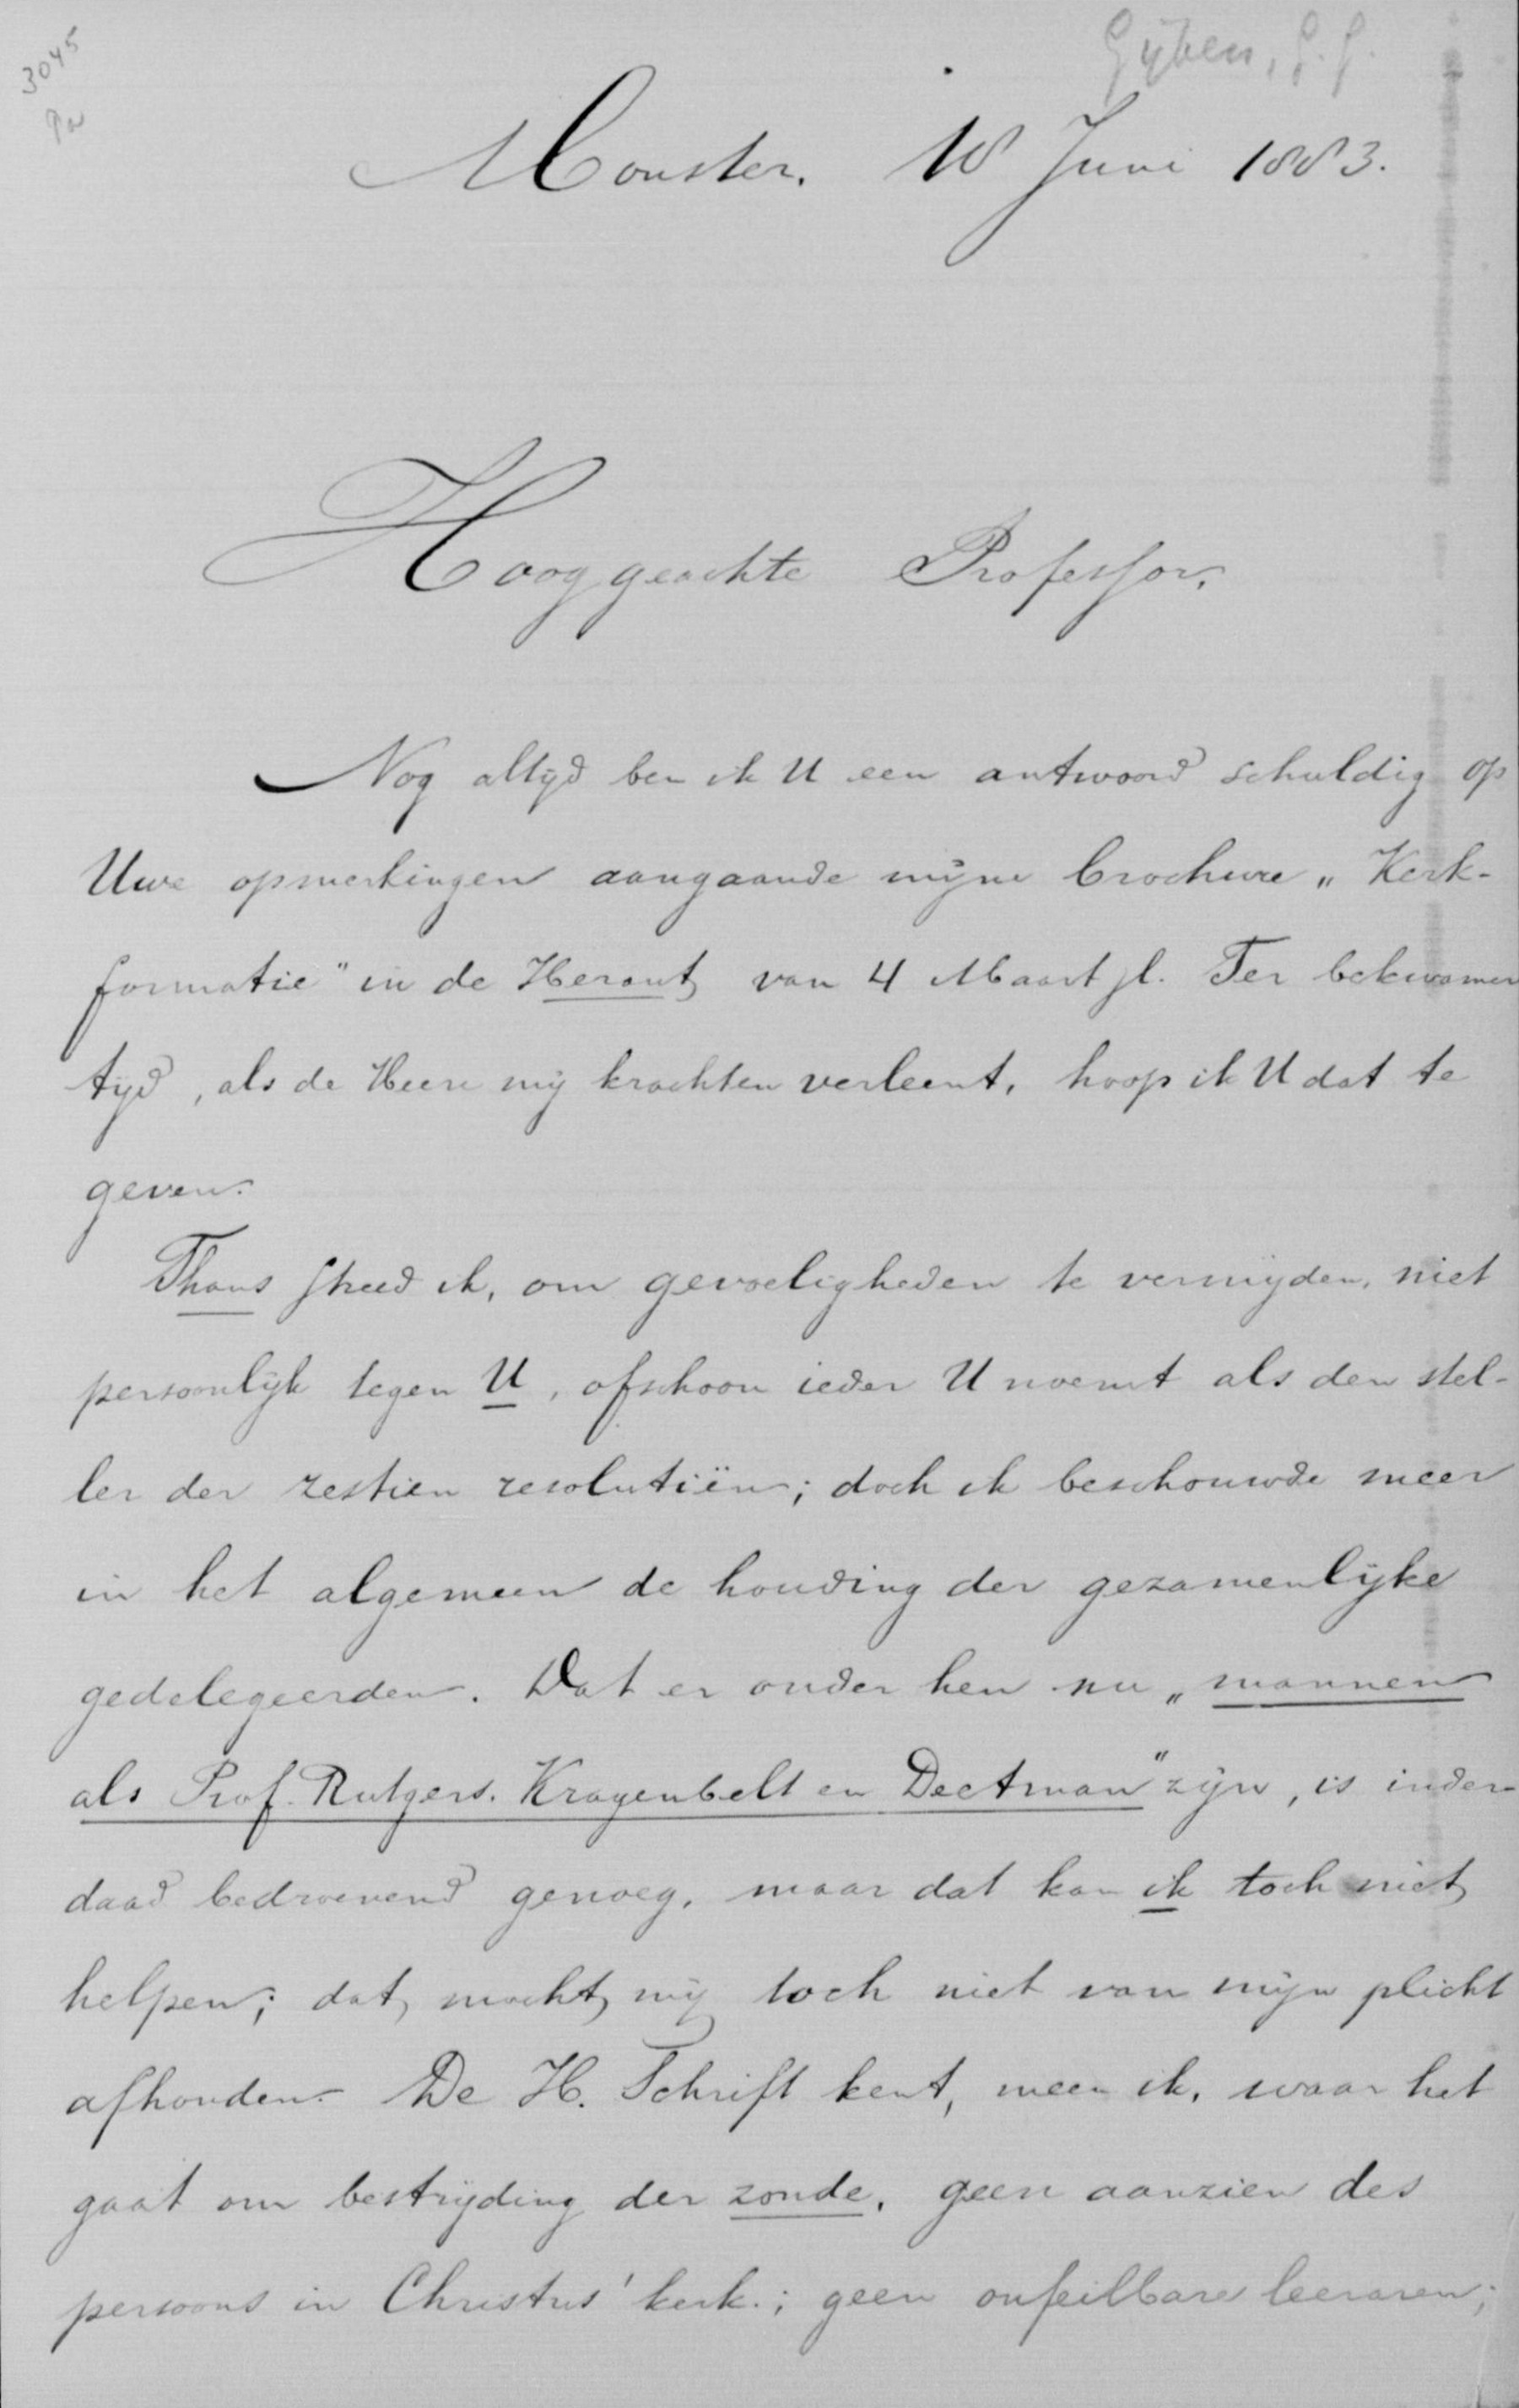 3045
Gijben, G. J.
Monster, 18 Juni 1883.
Hooggeachte Professor,
Nog altijd ben ik U een antwoord schuldig op
Uwe opmerkingen aangaande mijne brochure „Kerk-
formatie" in de Heraut van 4 Maart jl. Ter bekwamer
tijd, als de Heere mij krachten verleent, hoop ik U dat te
geven.
Thans streed ik, om gevoeligheden te vermijden, niet
persoonlijk tegen U, ofschoon ieder U noemt als den stel-
ler der zestien resolutiën; doch ik beschouwde meer
in het algemeen de houding der gezamenlijke
gedelegeerden. Dat er onder hen nu „mannen
als Prof. Rutgers, Krayenbelt en Deetman" zijn, is inder-
daad bedroevend genoeg, maar dat kan ik toch niet
helpen; dat mocht mij toch niet van mijn plicht
afhouden. De H. Schrift kent, meen ik, waar het
gaat om bestrijding der zonde, geen aanzien des
persoons in Christus' kerk; geen onfeilbare leeraren;